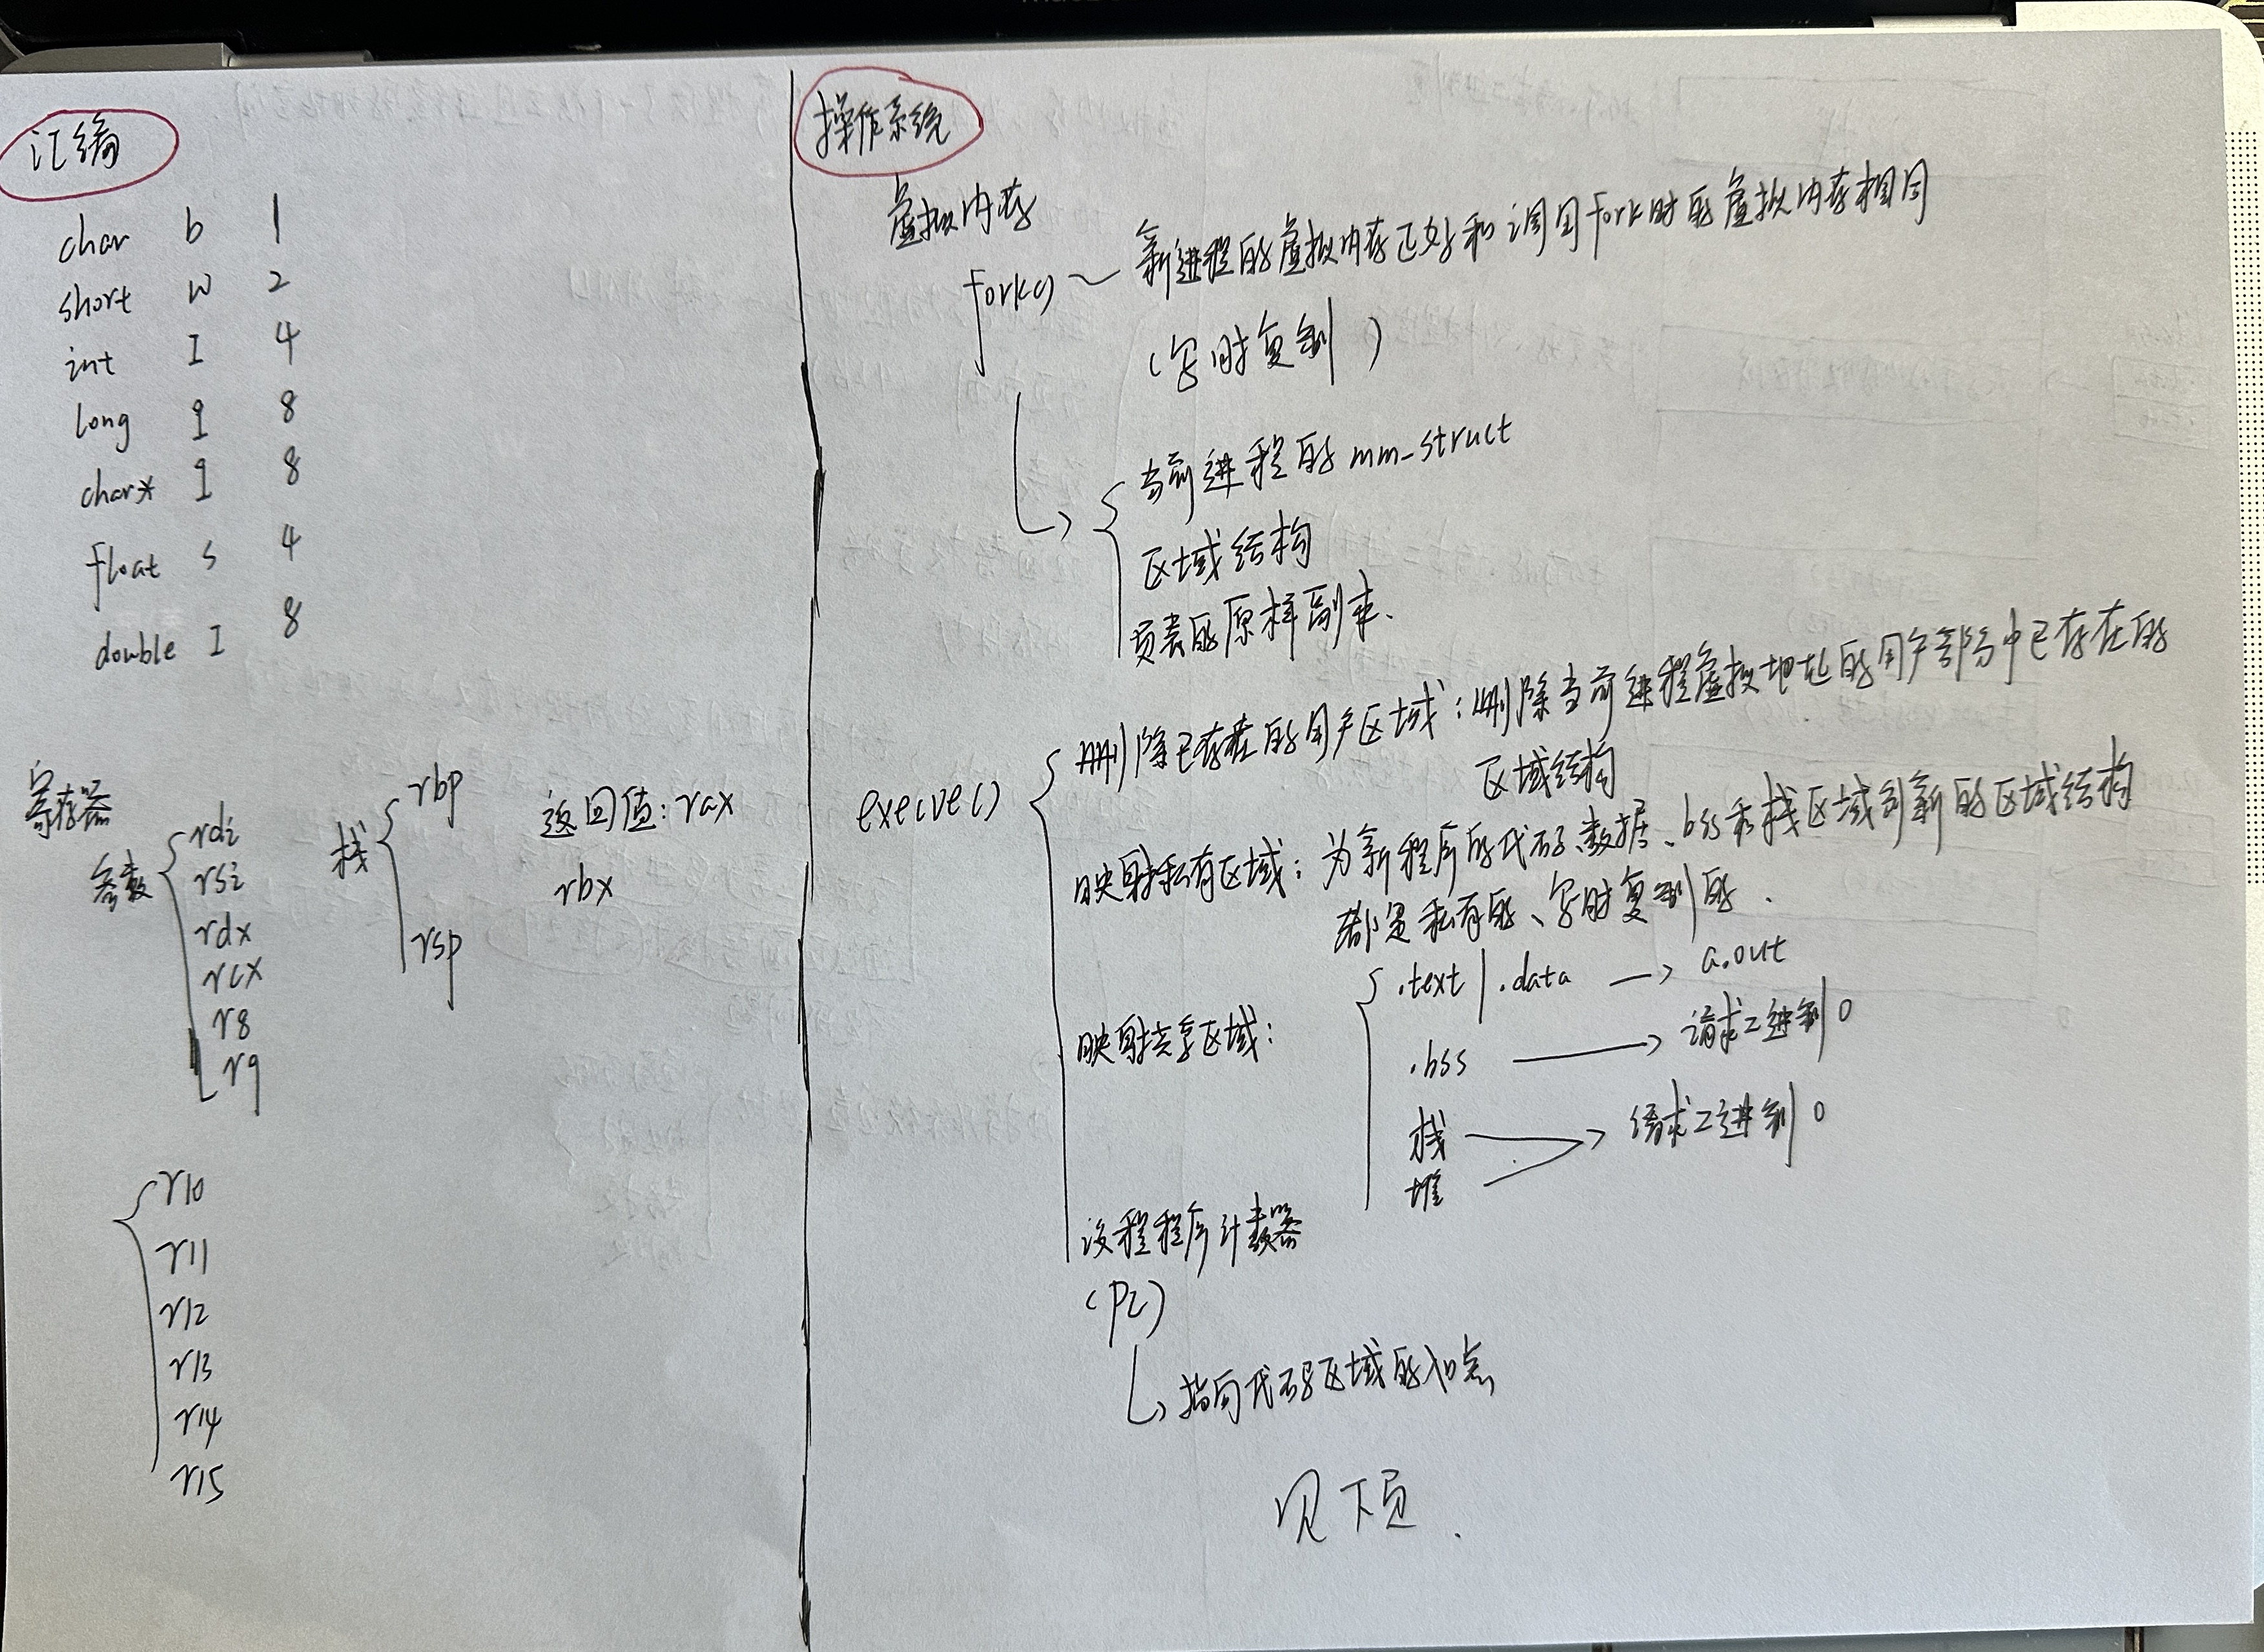 汇编
char b 1
short w 2
int I 4
long q 8
char* q 8
float s 4
double I 8
寄存器
参数
rdi
rsi
rdx
rcx
r8
r9
栈
rbp
rsp
返回值: rax
rbx
r10
r11
r12
r13
r14
r15
操作系统
虚拟内存
fork() ~ 新进程的虚拟内存正好和调用fork时的虚拟内存相同
(写时复制)
当前进程的mm_struct
区域结构
页表的原样副本.
execve()
删除已存在的用户区域: 删除当前进程虚拟地址的用户部分中已存在的
区域结构
映射私有区域: 为新程序的代码、数据、bss和栈区域创新的区域结构
都是私有的、写时复制的.
映射共享区域:
.text | .data → a.out
.bss → 请求二进制0
栈
堆
→ 请求二进制0
设程程序计数器
(PC)
↳ 指向代码区域的入口点
见下页.